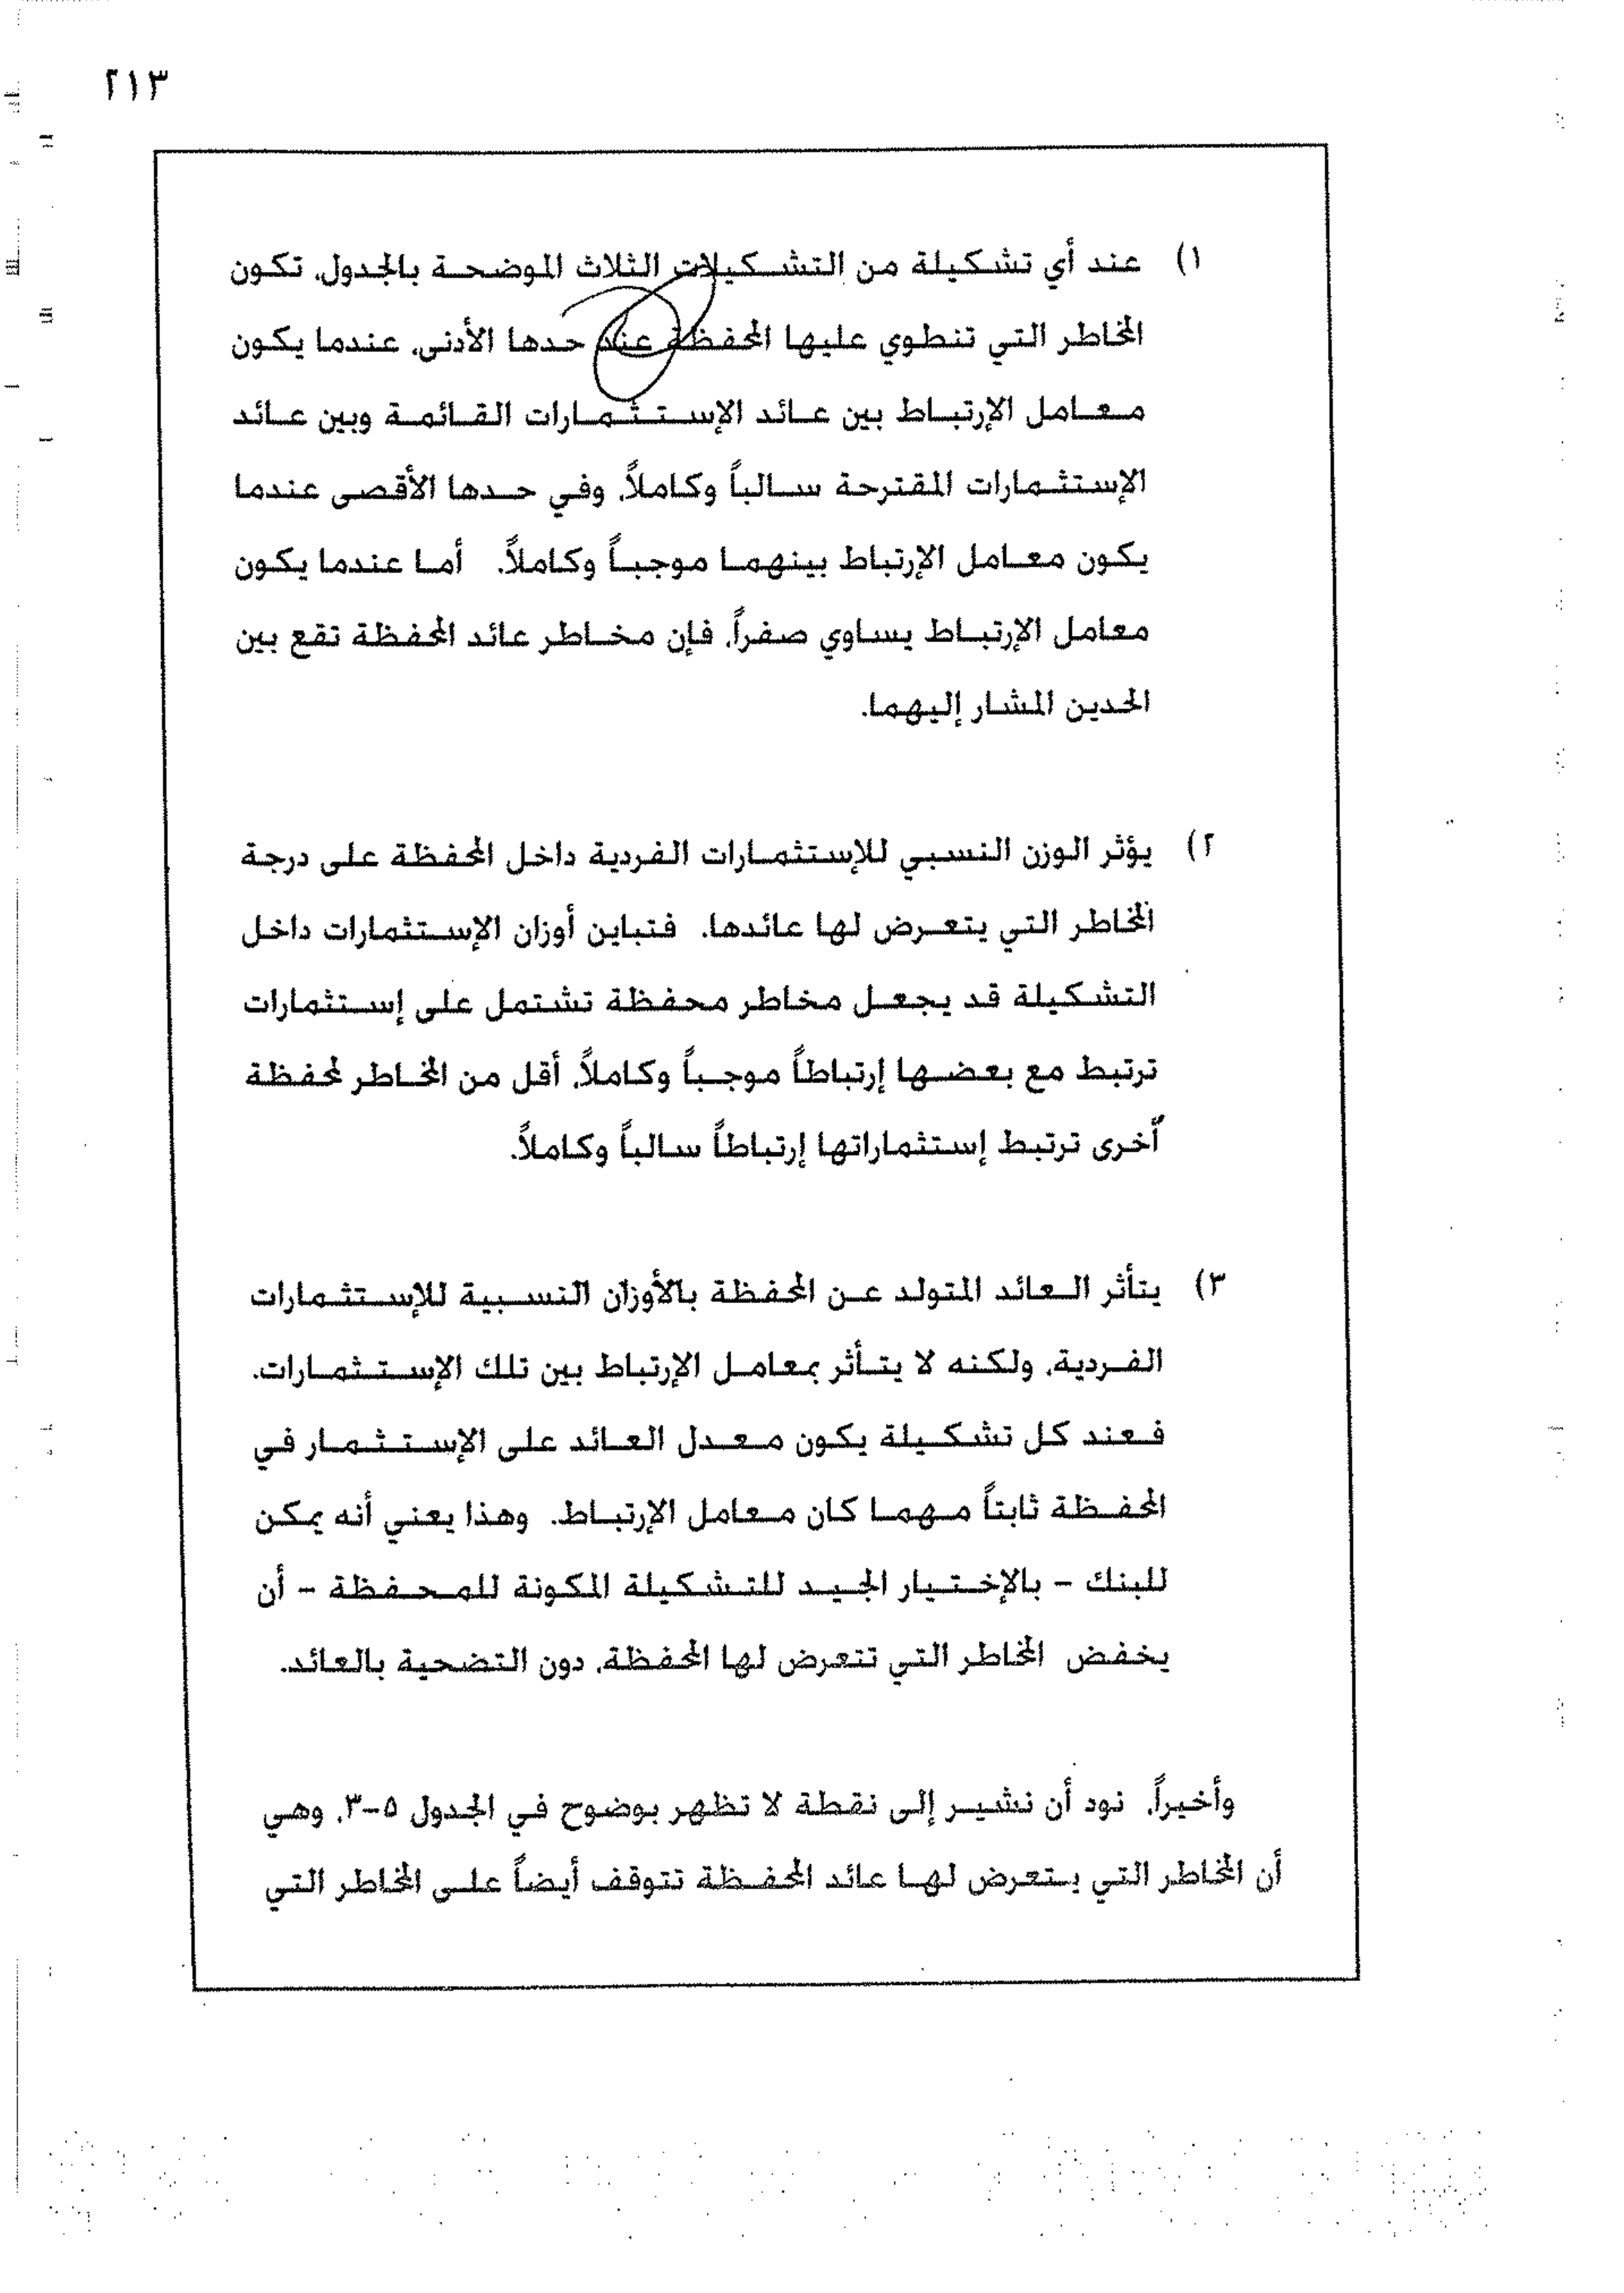 ٢١٣
١) عند أي تشكيلة من التشكيلات الثلاث الموضحة بالجدول، تكون
المخاطر التي تنطوي عليها المحفظة عند حدها الأدنى، عندما يكون
معامل الإرتباط بين عائد الإستثمارات القائمة وبين عائد
الإستثمارات المقترحة سالباً وكاملاً، وفي حدها الأقصى عندما
يكون معامل الإرتباط بينهما موجباً وكاملاً. أما عندما يكون
معامل الإرتباط يساوي صفراً، فإن مخاطر عائد المحفظة تقع بين
الحدين المشار إليهما.
٢) يؤثر الوزن النسبي للإستثمارات الفردية داخل المحفظة على درجة
المخاطر التي يتعرض لها عائدها. فتباين أوزان الإستثمارات داخل
التشكيلة قد يجعل مخاطر محفظة تشتمل على إستثمارات
ترتبط مع بعضها إرتباطاً موجباً وكاملاً، أقل من المخاطر لمحفظة
أخرى ترتبط إستثماراتها إرتباطاً سالباً وكاملاً.
٣) يتأثر العائد المتولد عن المحفظة بالأوزان النسبية للإستثمارات
الفردية، ولكنه لا يتأثر بمعامل الإرتباط بين تلك الإستثمارات.
فعند كل تشكيلة يكون معدل العائد على الإستثمار في
المحفظة ثابتاً مهما كان معامل الإرتباط. وهذا يعني أنه يمكن
للبنك - بالإختيار الجيد للتشكيلة المكونة للمحفظة - أن
يخفض المخاطر التي تتعرض لها المحفظة، دون التضحية بالعائد.
وأخيراً، نود أن نشير إلى نقطة لا تظهر بوضوح في الجدول ٥-٣، وهي
أن المخاطر التي يتعرض لها عائد المحفظة تتوقف أيضاً على المخاطر التي